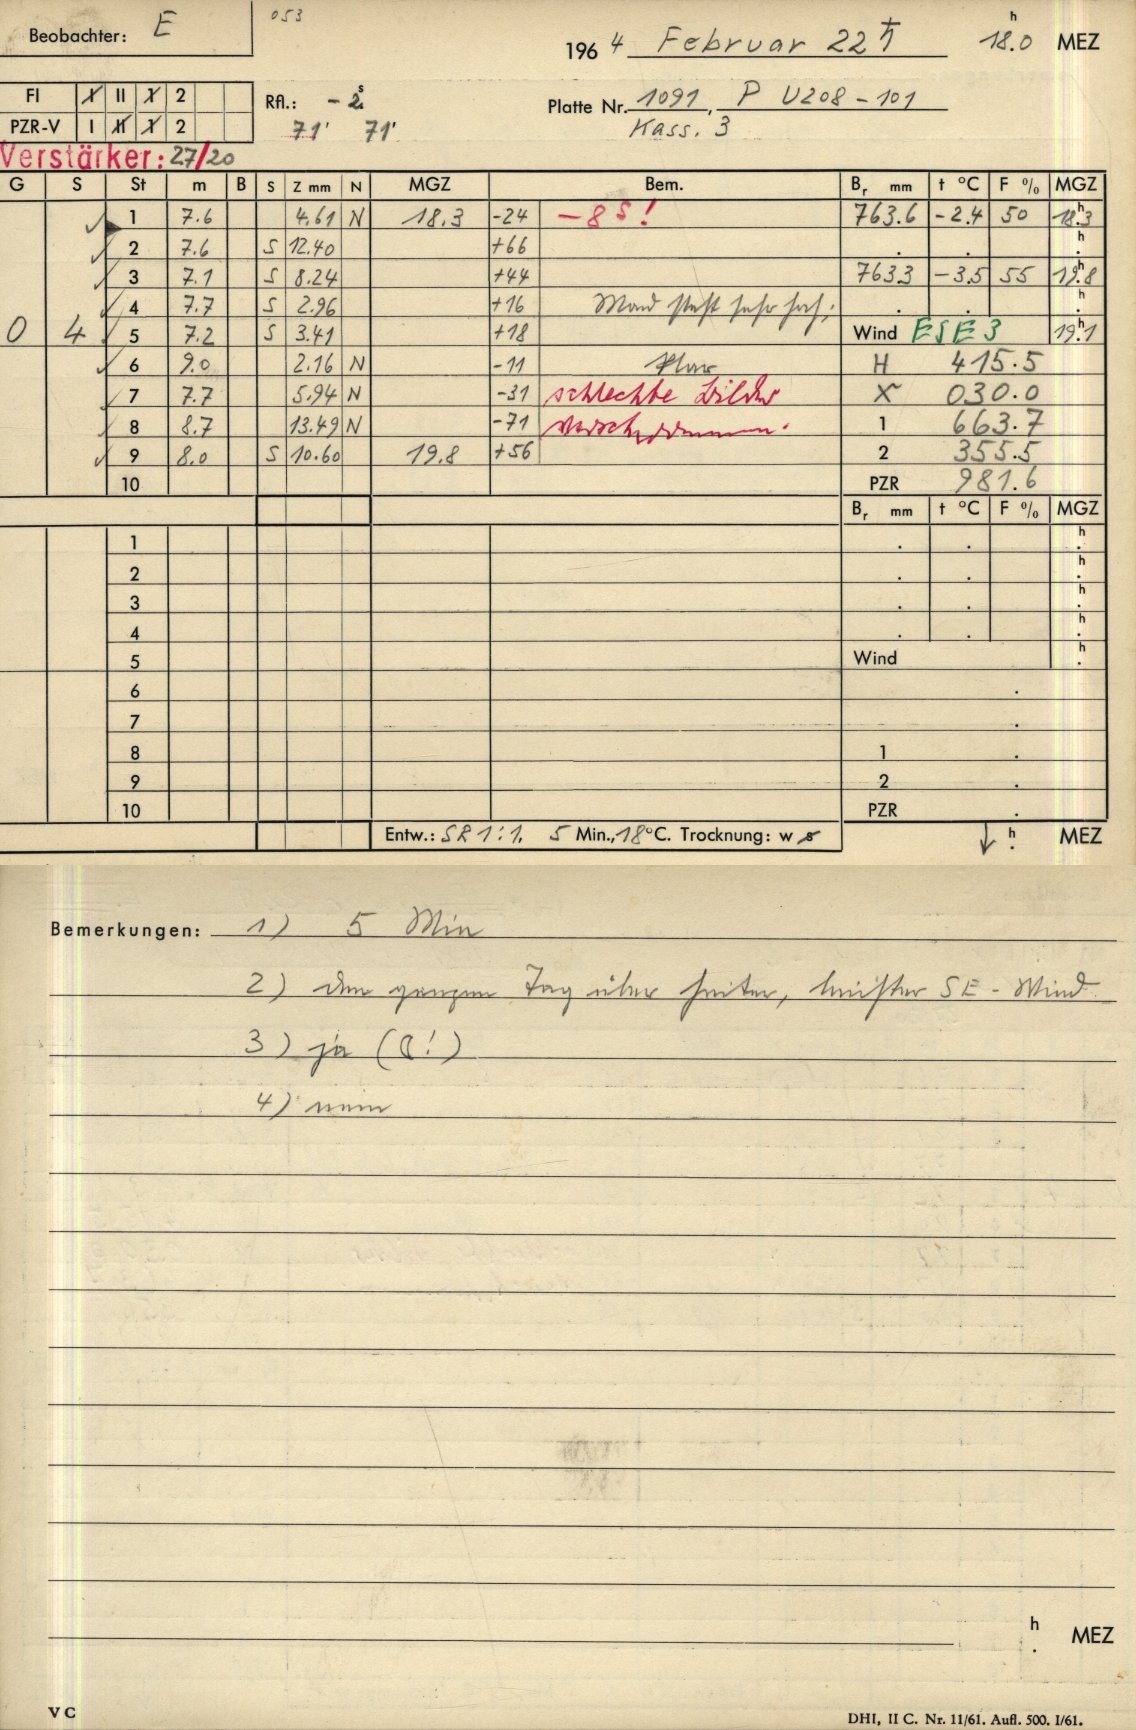 Beobachter: E 053
1964 Februar 22 ♄ 18.0 h MEZ
FI I II 1 2
Rfl.: - 2s Platte Nr. 1091, P U208-101
PZR-V I II 1 2 71' 71' Kass. 3
Verstärker: 27/20
G S St m B S Z mm N MGZ Bem. Br mm t °C F % MGZ
1 7.6 4.61 N 18.3 -24 -8s! 763.6 -2.4 50 18.3 h
2 7.6 S 12.40 +66 . . h
3 7.1 S 8.24 +44 763.3 -3.5 55 19.8 h
4 7.7 S 2.96 +16 Mond steht sehr hoch; . . h
0 4 5 7.2 S 3.41 +18 Wind ESE 3 19.1 h
6 9.0 2.16 N -11 klar H 415.5
7 7.7 5.94 N -31 schlechte Bilder X 030.0
8 8.7 13.49 N -71 verschwommen. 1 663.7
9 8.0 S 10.60 19.8 +56 2 355.5
10 PZR 981.6
Br mm t °C F % MGZ
1 . . h
2 . . h
3 . . h
4 . . h
5 Wind h
6 .
7 .
8 1 .
9 2 .
10 PZR .
Entw.: SR 1:1. 5 Min., 18°C. Trocknung: w s ↓ h MEZ
Bemerkungen: 1) 5 Min
2) den ganzen Tag über heiter, leichter SE-Wind
3) ja (☾!)
4) nein
h MEZ
V C
DHI, II C. Nr. 11/61. Aufl. 500. I/61.